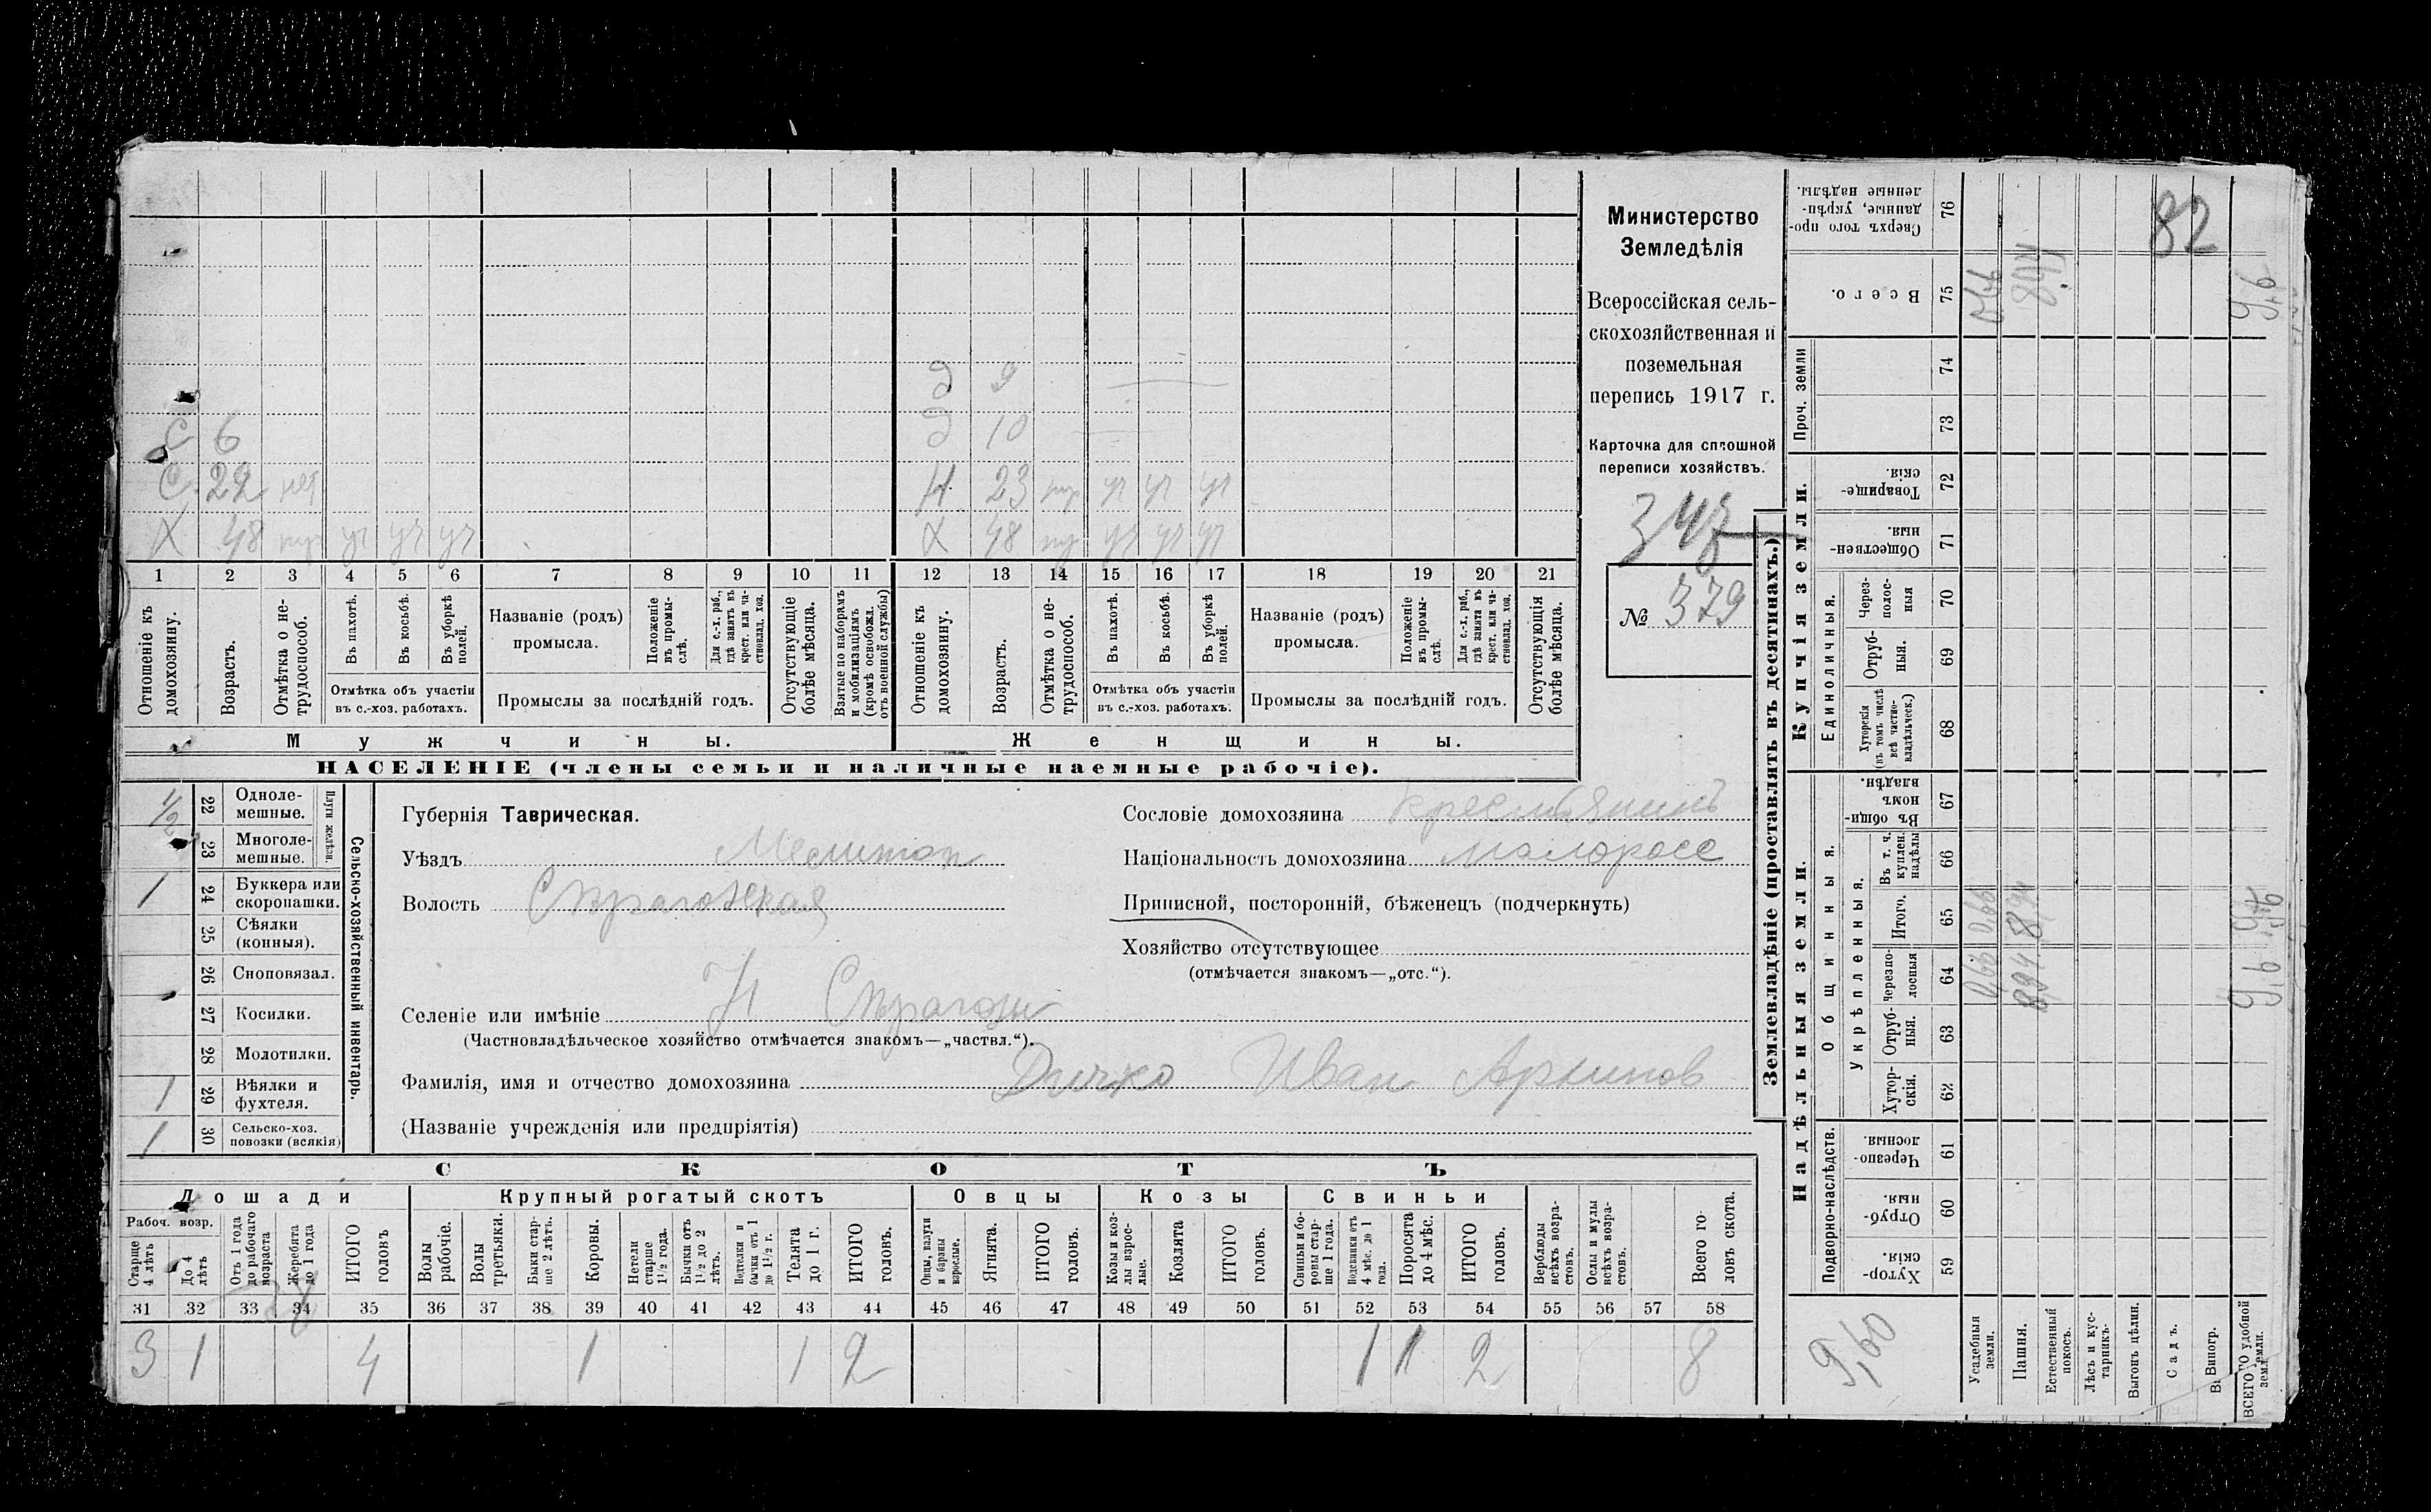 82
Министерство
Земледѣлія
Всероссійская сель-
скохозяйственная и
поземельная
перепись 1917 г.
Карточка для сплошной
переписи хозяйствъ.
347
№ 379
д 9
С 6 д 10
С 22 нет Н 23 ур уч уч
Х 48 уч уч уч Х 48 уч уч уч
1 2 3 4 5 6 7 8 9 10 11 12 13 14 15 16 17 18 19 20 21
Отношеніе къ домохозяину.
Возрастъ.
Отмѣтка о не-трудоспособ.
Въ пахотѣ.
Въ косьбѣ.
Въ уборкѣ полей.
Отмѣтка объ участіи
въ с.-хоз. работахъ.
Названіе (родъ)
промысла.
Положеніе въ промы-слѣ.
Для с.-х. раб., гдѣ занятъ въ крест. или ча-стновлад. хоз.
Промыслы за послѣдній годъ.
Отсутствующіе болѣе мѣсяца.
Взятые по наборамъ и мобилизаціямъ (кромѣ освобожд. отъ военной службы)
Отношеніе къ домохозяину.
Возрастъ.
Отмѣтка о не-трудоспособ.
Въ пахотѣ.
Въ косьбѣ.
Въ уборкѣ полей.
Отмѣтка объ участіи
въ с.-хоз. работахъ.
Названіе (родъ)
промысла.
Положеніе въ промы-слѣ.
Для с.-х. раб., гдѣ занята въ крест. или ча-стновлад. хоз.
Промыслы за послѣдній годъ.
Отсутствующія болѣе мѣсяца.
Мужчины. Женщины.
НАСЕЛЕНІЕ (члены семьи и наличные наемные рабочіе).
Сельско-хозяйственный инвентарь.
Плуги желѣзн.
1/2 22 Однолемешные.
23 Многолемешные.
1 24 Буккера или скоропашки.
25 Сѣялки (конныя).
26 Сноповязал.
27 Косилки.
28 Молотилки.
1 29 Вѣялки и фухтеля.
1 30 Сельско-хоз. повозки (всякія)
Губернія Таврическая.
Уѣздъ Мелитоп
Волость Строгоновская
Селеніе или имѣніе Н Строгон
(Частновладѣльческое хозяйство отмѣчается знакомъ—„частвл.“).
Фамилія, имя и отчество домохозяина Дичко Иван Архипов
(Названіе учрежденія или предпріятія)
Сословіе домохозяина крестьянинъ
Національность домохозяина малоросс
Приписной, посторонній, бѣженецъ (подчеркнуть)
Хозяйство отсутствующее
(отмѣчается знакомъ—„отс.“).
СКОТЪ
Лошади Крупный рогатый скотъ Овцы Козы Свиньи
Рабоч. возр.
Старше 4 лѣтъ
До 4 лѣтъ
Отъ 1 года до рабочаго возраста
Жеребята до 1 года
ИТОГО головъ
Волы рабочіе.
Волы третьяки.
Быки стар-ше 2 лѣтъ.
Коровы.
Нетели старше 1½ года.
Бычки отъ 1½ до 2 лѣтъ.
Нетелки и бычки отъ 1 до 1½ г.
Телята до 1 г.
ИТОГО головъ.
Овцы, валухи и бараны взрослые.
Ягнята.
ИТОГО головъ.
Козы и коз-лы взрос-лые.
Козлята
ИТОГО головъ.
Свиньи и бо-ровы стар-ше 1 года.
Подсвинки отъ 4 мѣс. до 1 года.
Поросята до 4 мѣс.
ИТОГО головъ.
Верблюды всѣхъ возра-стовъ.
Ослы и мулы всѣхъ возра-стовъ.
Всего го-ловъ скота.
31 32 33 34 35 36 37 38 39 40 41 42 43 44 45 46 47 48 49 50 51 52 53 54 55 56 57 58
3 1 4 1 1 2 1 1 2 8
Землевладѣніе (проставлять въ десятинахъ.)
Купчія земли.
Надѣльныя земли.
Сверхъ того про-данные, укрѣп-ленные надѣлы. 76
Всего. 75 8,94 9,6
Проч. земли 74
73
Товарище-скія. 72
Обществен-ныя. 71
Единоличныя.
Через-полос-ныя 70
Отруб-ныя. 69
Хуторскія (въ томъ числѣ всѣ частно-владѣльческ.) 68
Общинныя.
Въ общи-номъ владѣн. 67
Укрѣпленныя.
Въ т. ч. куплен. надѣлы 66
Итого. 65 8,94
Черезпо-лосныя 64 8,94 9,6
Отруб-ныя. 63
Хутор-скія. 62
Подворно-наслѣдств.
Черезпо-лосныя 61
Отруб-ныя. 60
Хутор-скія. 59
9,60
Усадебныя земли.
Пашня.
Естественный покосъ.
Лѣсъ и кус-тарникъ.
Выгонъ цѣлин.
Садъ.
Виногр.
ВСЕГО удобной земли.